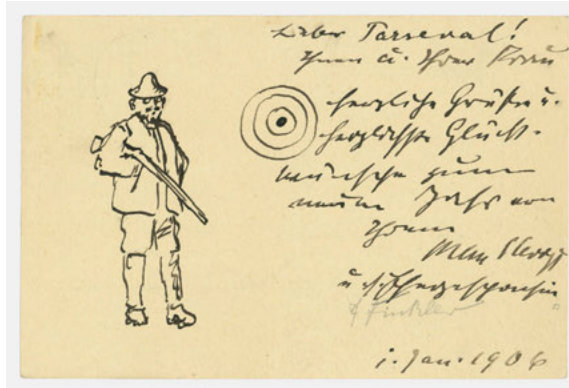 Lieber Parseval!
Ihnen u. Ihrer Frau
herzliche Grüße u.
herzlichste Glück-
wünsche zum
neuen Jahr von
Ihrem
Max Slevogt
u. s. Ehegesponsin
Finkler
1. Jan. 1906